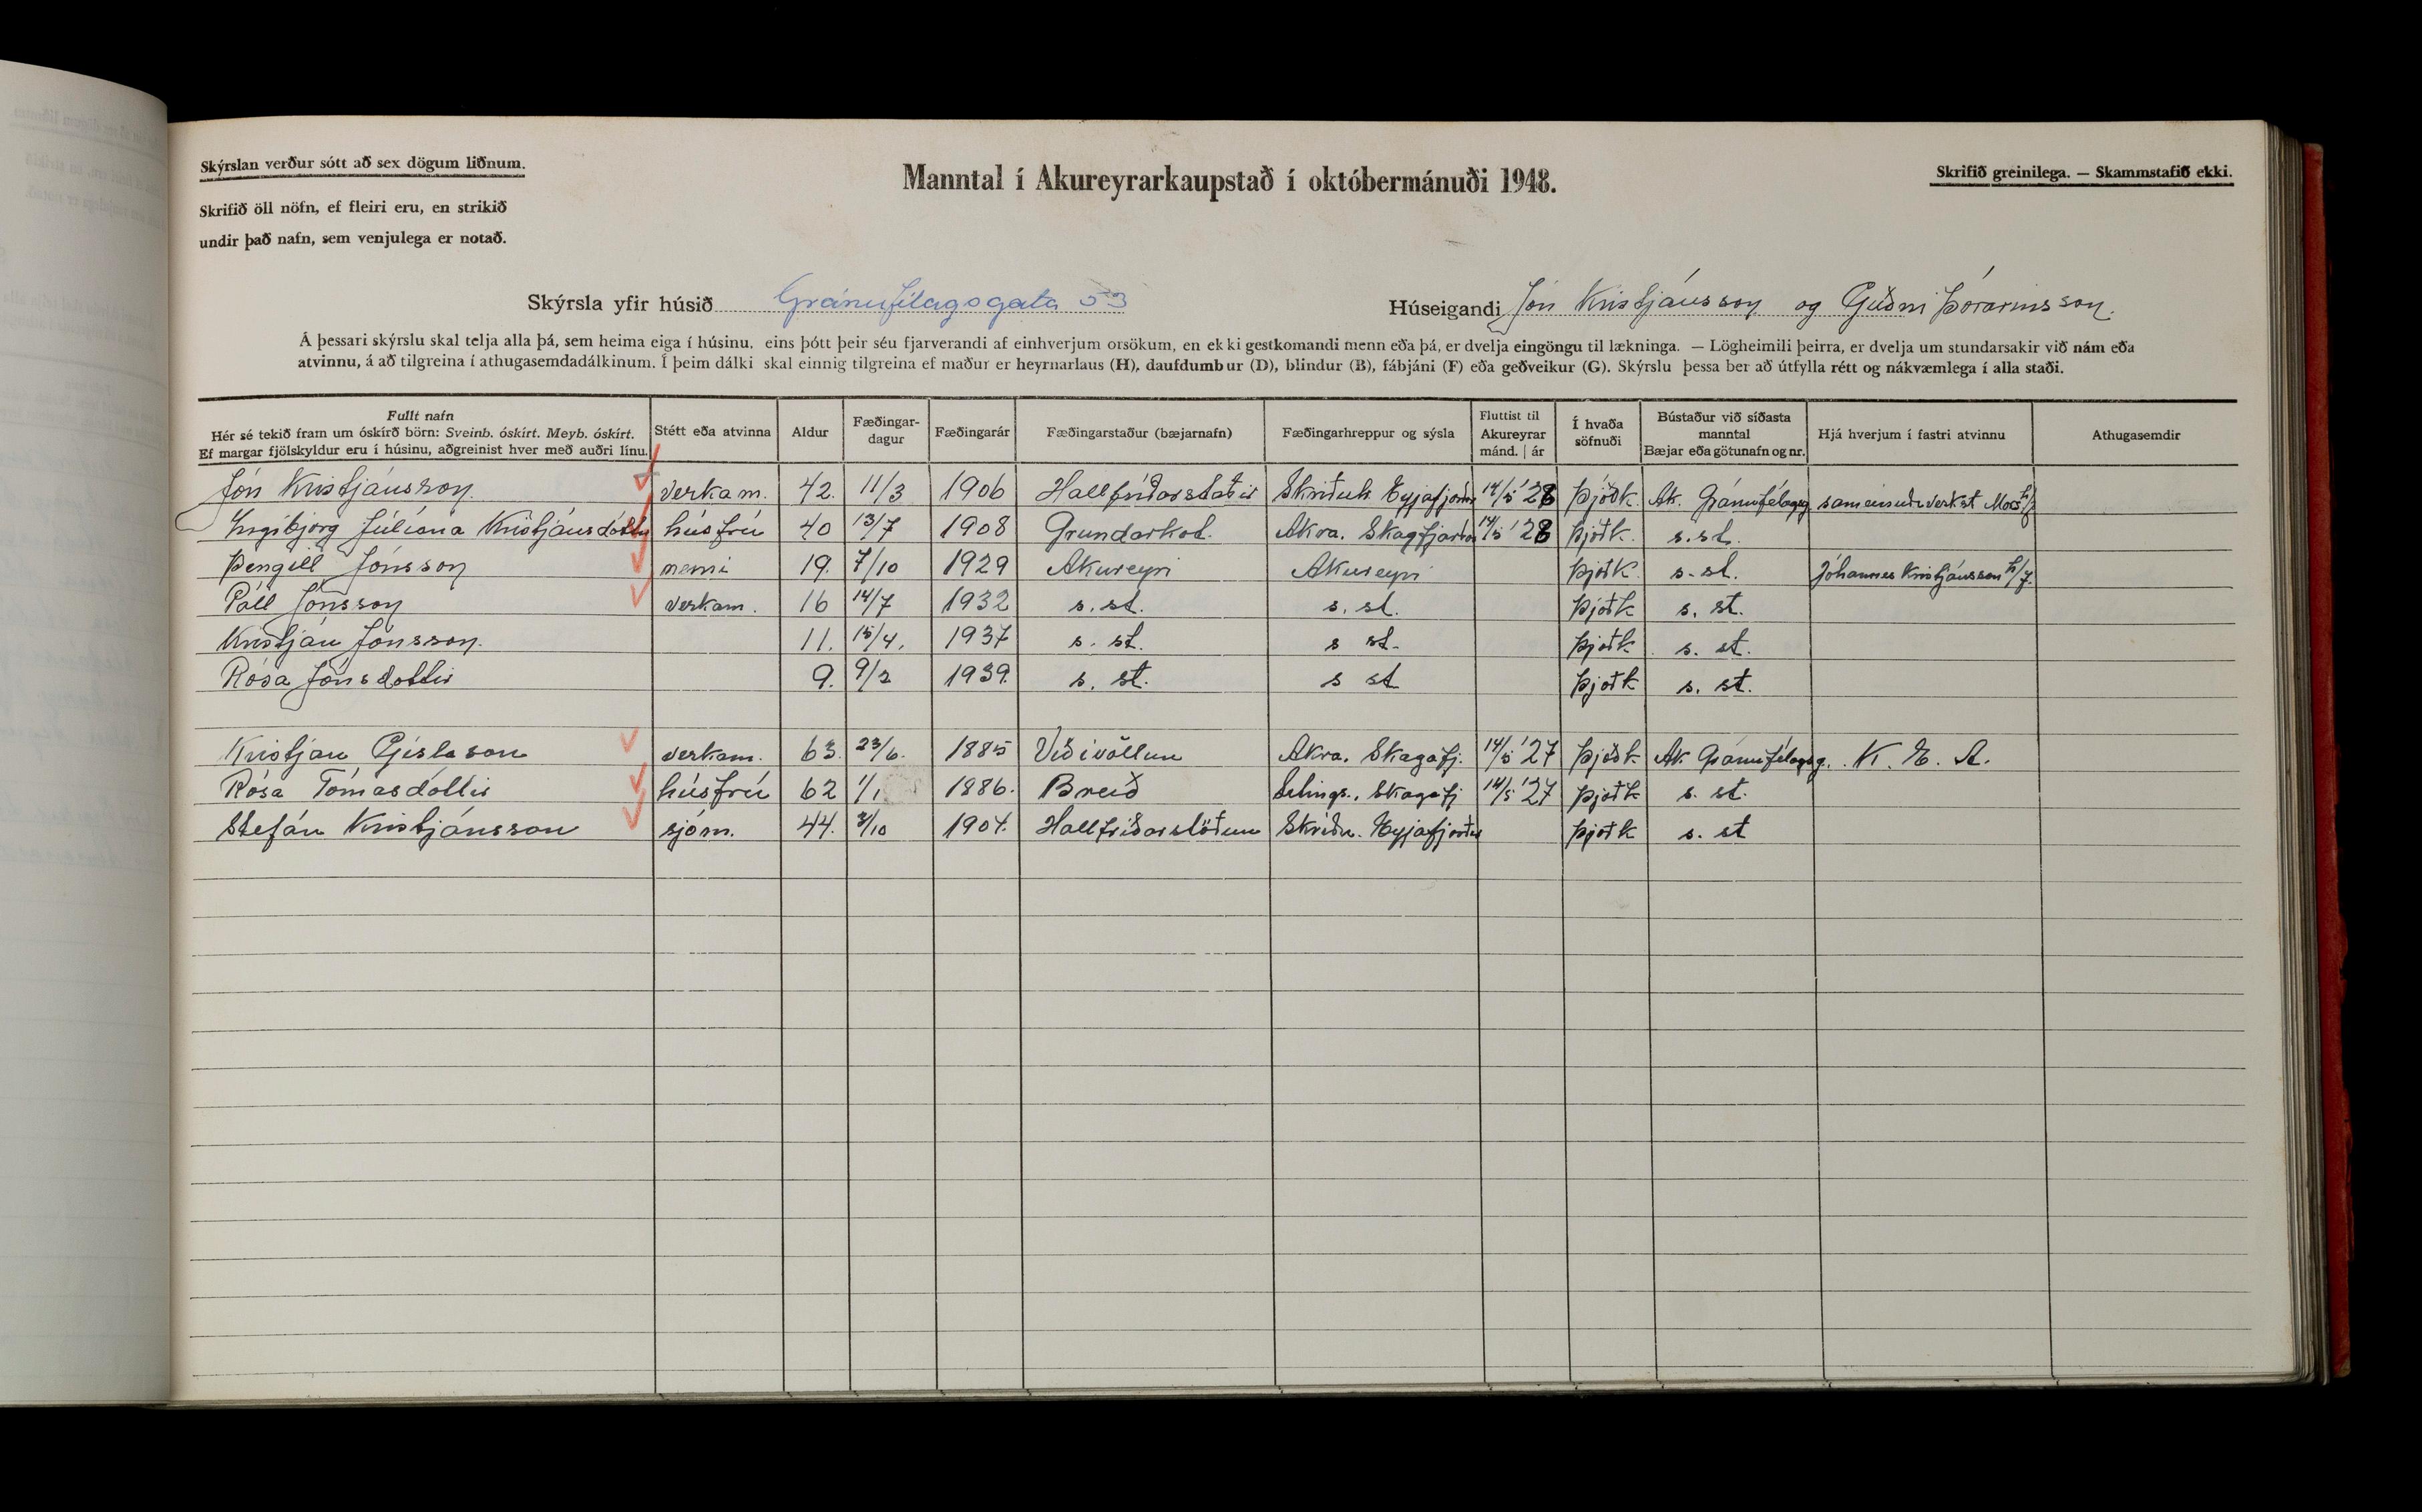 Skýrslan verður sótt að sex dögum liðnum.
Manntal í Akureyrarkaupstað í októbermánuði 1948.
Skrifið greinilega. — Skammstafið ekki.
Skrifið öll nöfn, ef fleiri eru, en strikið
undir það nafn, sem venjulega er notað.
Skýrsla yfir húsið Gránufélagsgata 53
Húseigandi Jón Kristjánsson og Guðni Þórarinsson.
Á þessari skýrslu skal telja alla þá, sem heima eiga í húsinu, eins þótt þeir séu fjarverandi af einhverjum orsökum, en ekki gestkomandi menn eða þá, er dvelja eingöngu til lækninga. — Lögheimili þeirra, er dvelja um stundarsakir við nám eða
atvinnu, á að tilgreina í athugasemdadálkinum. Í þeim dálki skal einnig tilgreina ef maður er heyrnarlaus (H), daufdumbur (D), blindur (B), fábjáni (F) eða geðveikur (G). Skýrslu þessa ber að útfylla rétt og nákvæmlega í alla staði.
Fullt nafn
Hér sé tekið fram um óskírð börn: Sveinb. óskírt. Meyb. óskírt.
Ef margar fjölskyldur eru í húsinu, aðgreinist hver með auðri línu.
Stétt eða atvinna
Aldur
Fæðingar-
dagur
Fæðingarár
Fæðingarstaður (bæjarnafn)
Fæðingarhreppur og sýsla
Fluttist til
Akureyrar
mánd. | ár
Í hvaða
söfnuði
Bústaður við síðasta
manntal
Bæjar eða götunafn og nr.
Hjá hverjum í fastri atvinnu
Athugasemdir
Jón Kristjánsson verkam. 42. 11/3 1906 Hallfríðarstaðir Skriðuh Eyjafjörður 14/5 '28 Þjóðk. Ak. Gránufélagsg
Ingibjörg Júlíana Kristjánsdóttir húsfrú 40 13/7 1908 Grundarkot. Akra. 14/5 '28 Þjóðk. s.st.
Þengill Jónsson nemi 19. 7/10 1929 Akureyri Akureyri Þjóðk s.st. Jóhannes Kristjánsson h/f.
Páll Jónsson verkam. 16 14/7 1932 s.st. s.st. Þjóðk s. st.
Kristján Jónsson. 11. 15/4. 1937 s. st. s st. Þjóðk s. st.
Rósa Jónsdóttir 9. 9/2 1939. s. st. s st Þjóðk s. st.
Kristján Gíslason verkam. 63. 23/6. 1885 Víðivöllum Akra. Skagafj. 14/5 '27 Þjóðk. Ak Gránufélagsg. K. E. A.
Rósa Tómasdóttir húsfrú 62 1/1 1886. Breið Skagafj 14/5 '27 Þjóðk s. st.
Stefán Kristjánsson sjóm. 44. 3/10 1904. Hallfríðarstöðum Skriðu. Eyjafjörður Þjóðk s. st